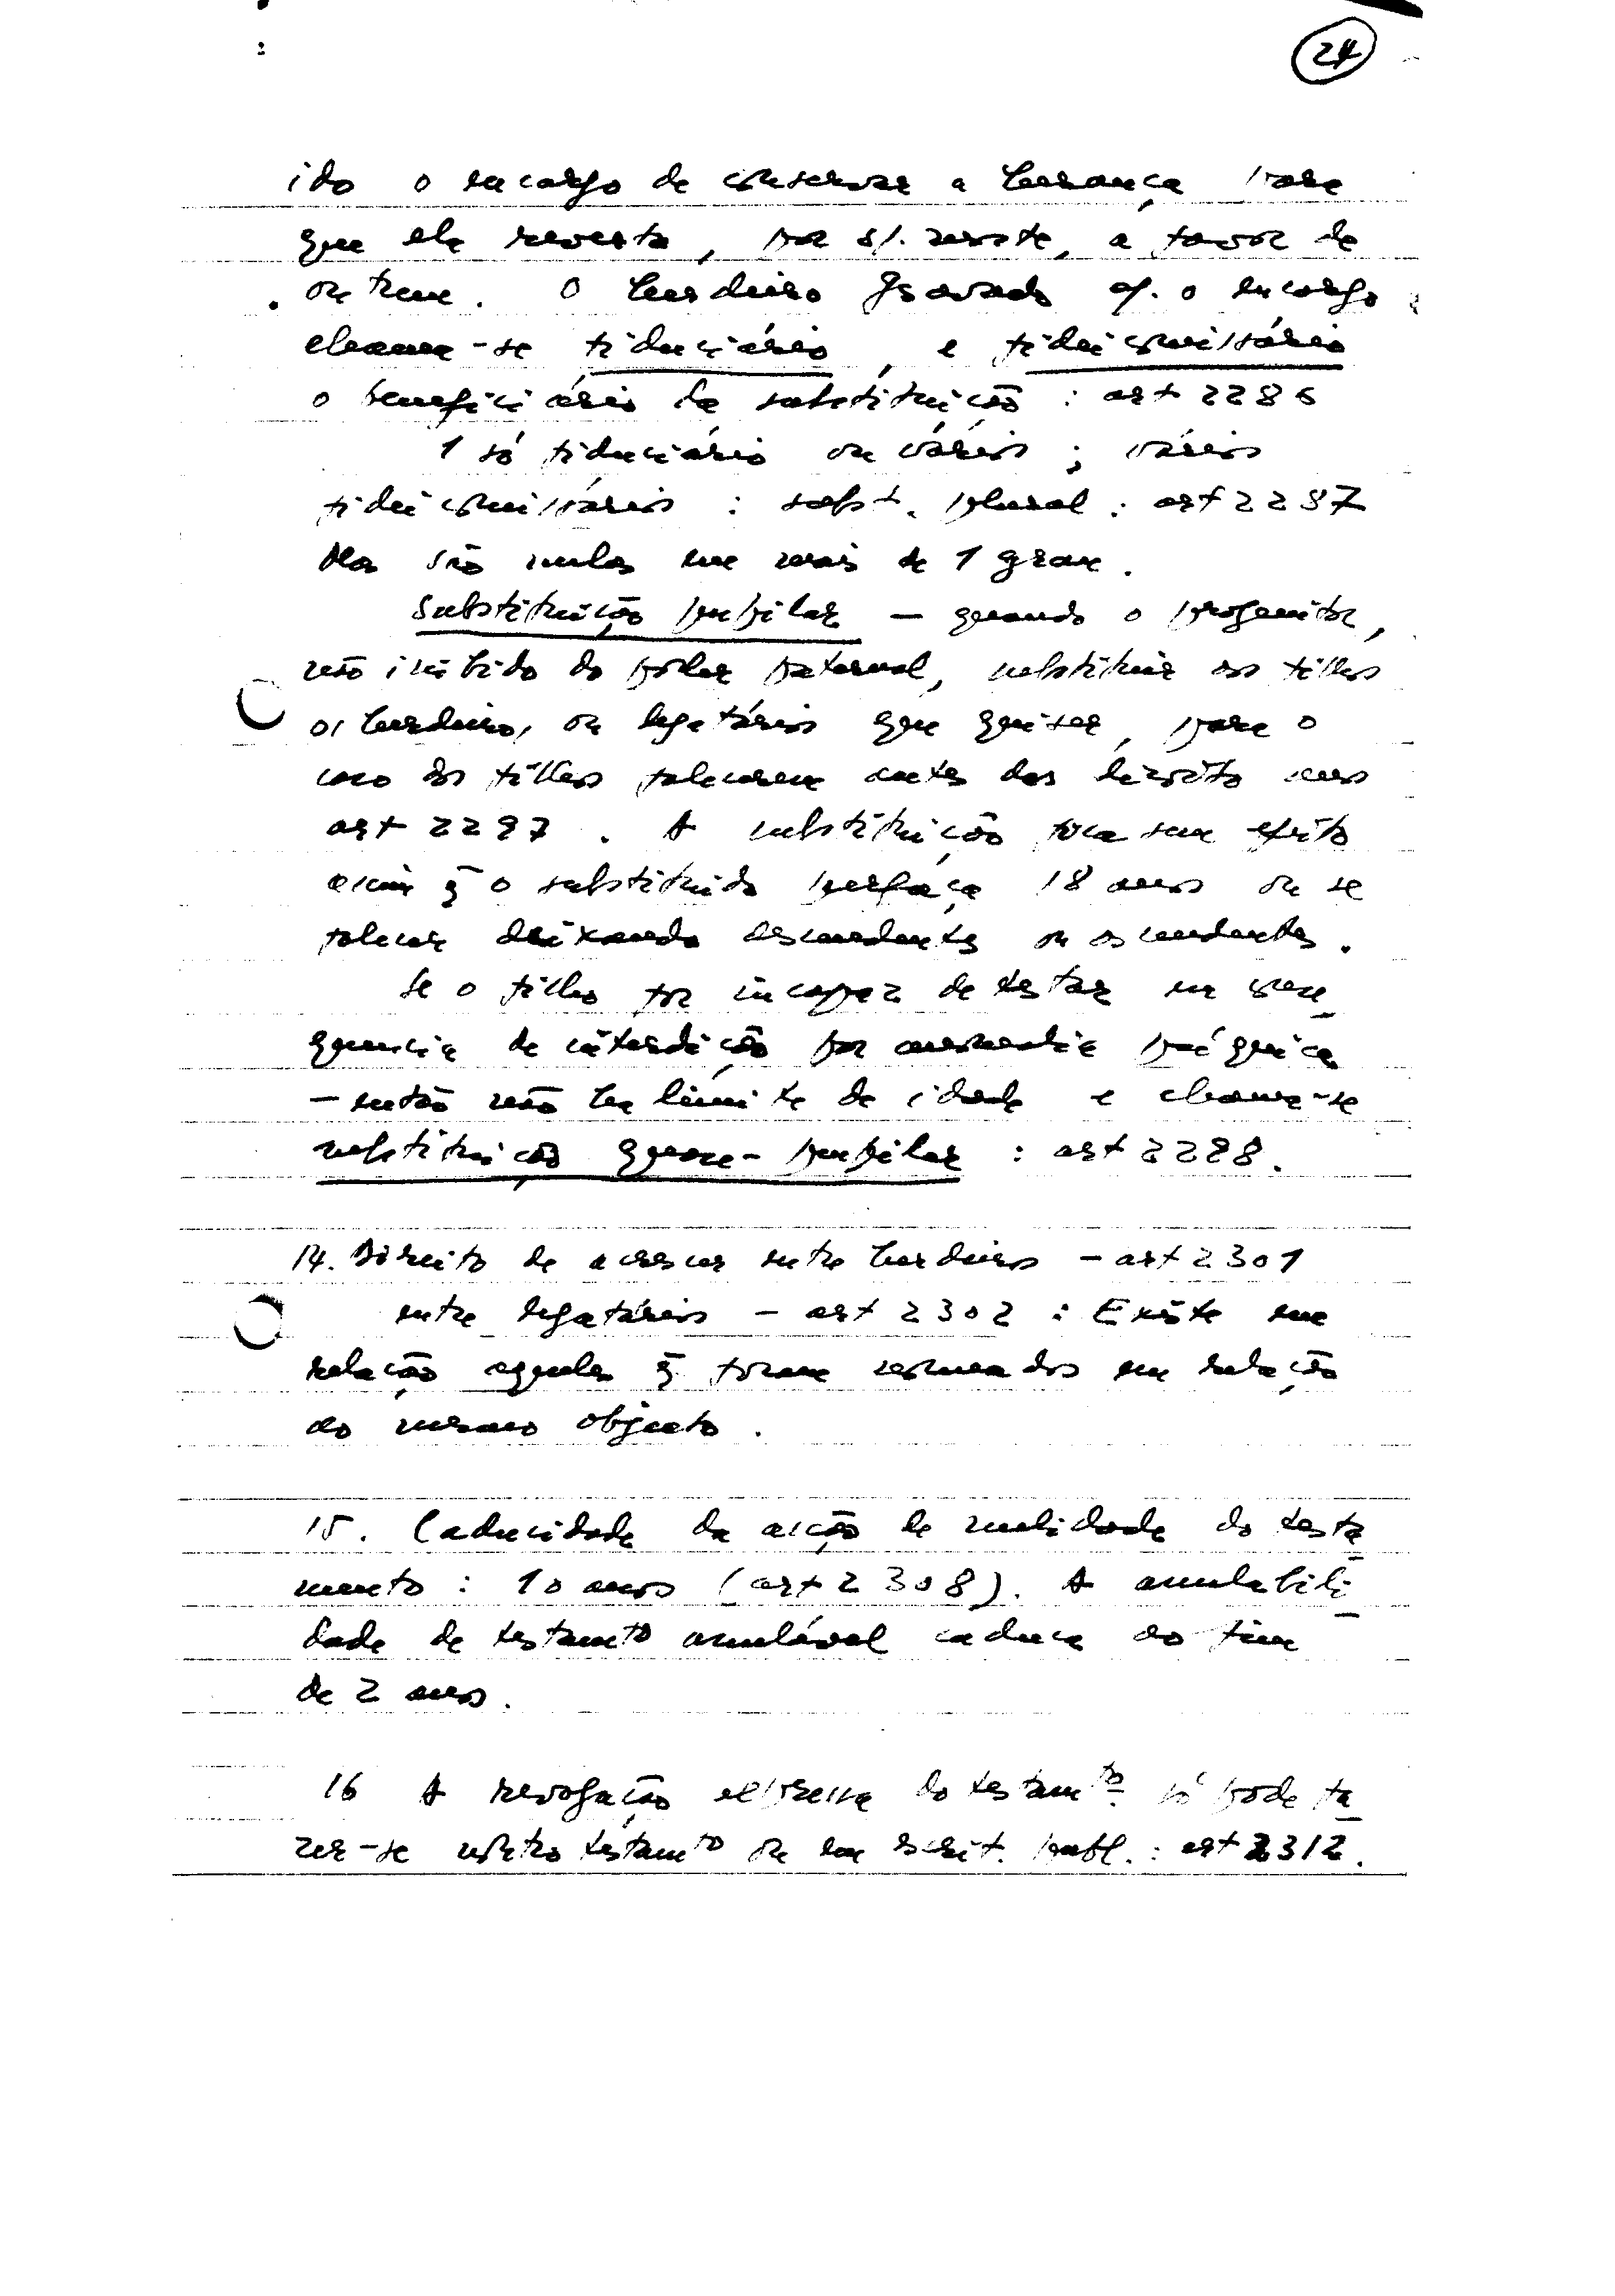 24
ido o encargo de conservar a herança para
que ela reverta, por s/. morte, a favor de
outrem. O herdeiro gravado c/. o encargo
chama-se fiduciário, e fideicomissário
o beneficiário da substituição : art 2286
1 só fiduciário ou vários ; vários
fideicomissários : subst. plural : art 2287
Mas são nulas em mais de 1 grau.
Substituição pupilar — quando o progenitor,
não inibido do poder paternal, substituir aos filhos
os herdeiros, ou legatários que quiser, para o
caso dos filhos falecerem antes dos dezoito anos
art 2297 . A substituição fica sem efeito
assim q̃ o substituido perfaça 18 anos ou se
falecer deixando descendentes ou ascendentes.
Se o filho for incapaz de testar em conse
quencia de interdição por anomalia psíquica
— então não há limite de idade e chama-se
substituição quase-pupilar : art 2298.
14. Direito de acrescer entre herdeiros — art 2301
entre legatários — art 2302 : Existe em
relação aqueles q̃ foram nomeados em relação
ao mesmo objecto .
15. Caducidade da acção de nulidade do testa
mento : 10 anos (art 2308). A anulabili
dade de testamto anulável caduca ao fim
de 2 anos .
16 A revogação expressa do testamto. só pode fa
zer-se noutro testamto ou em escrit. publ. : art 2312.